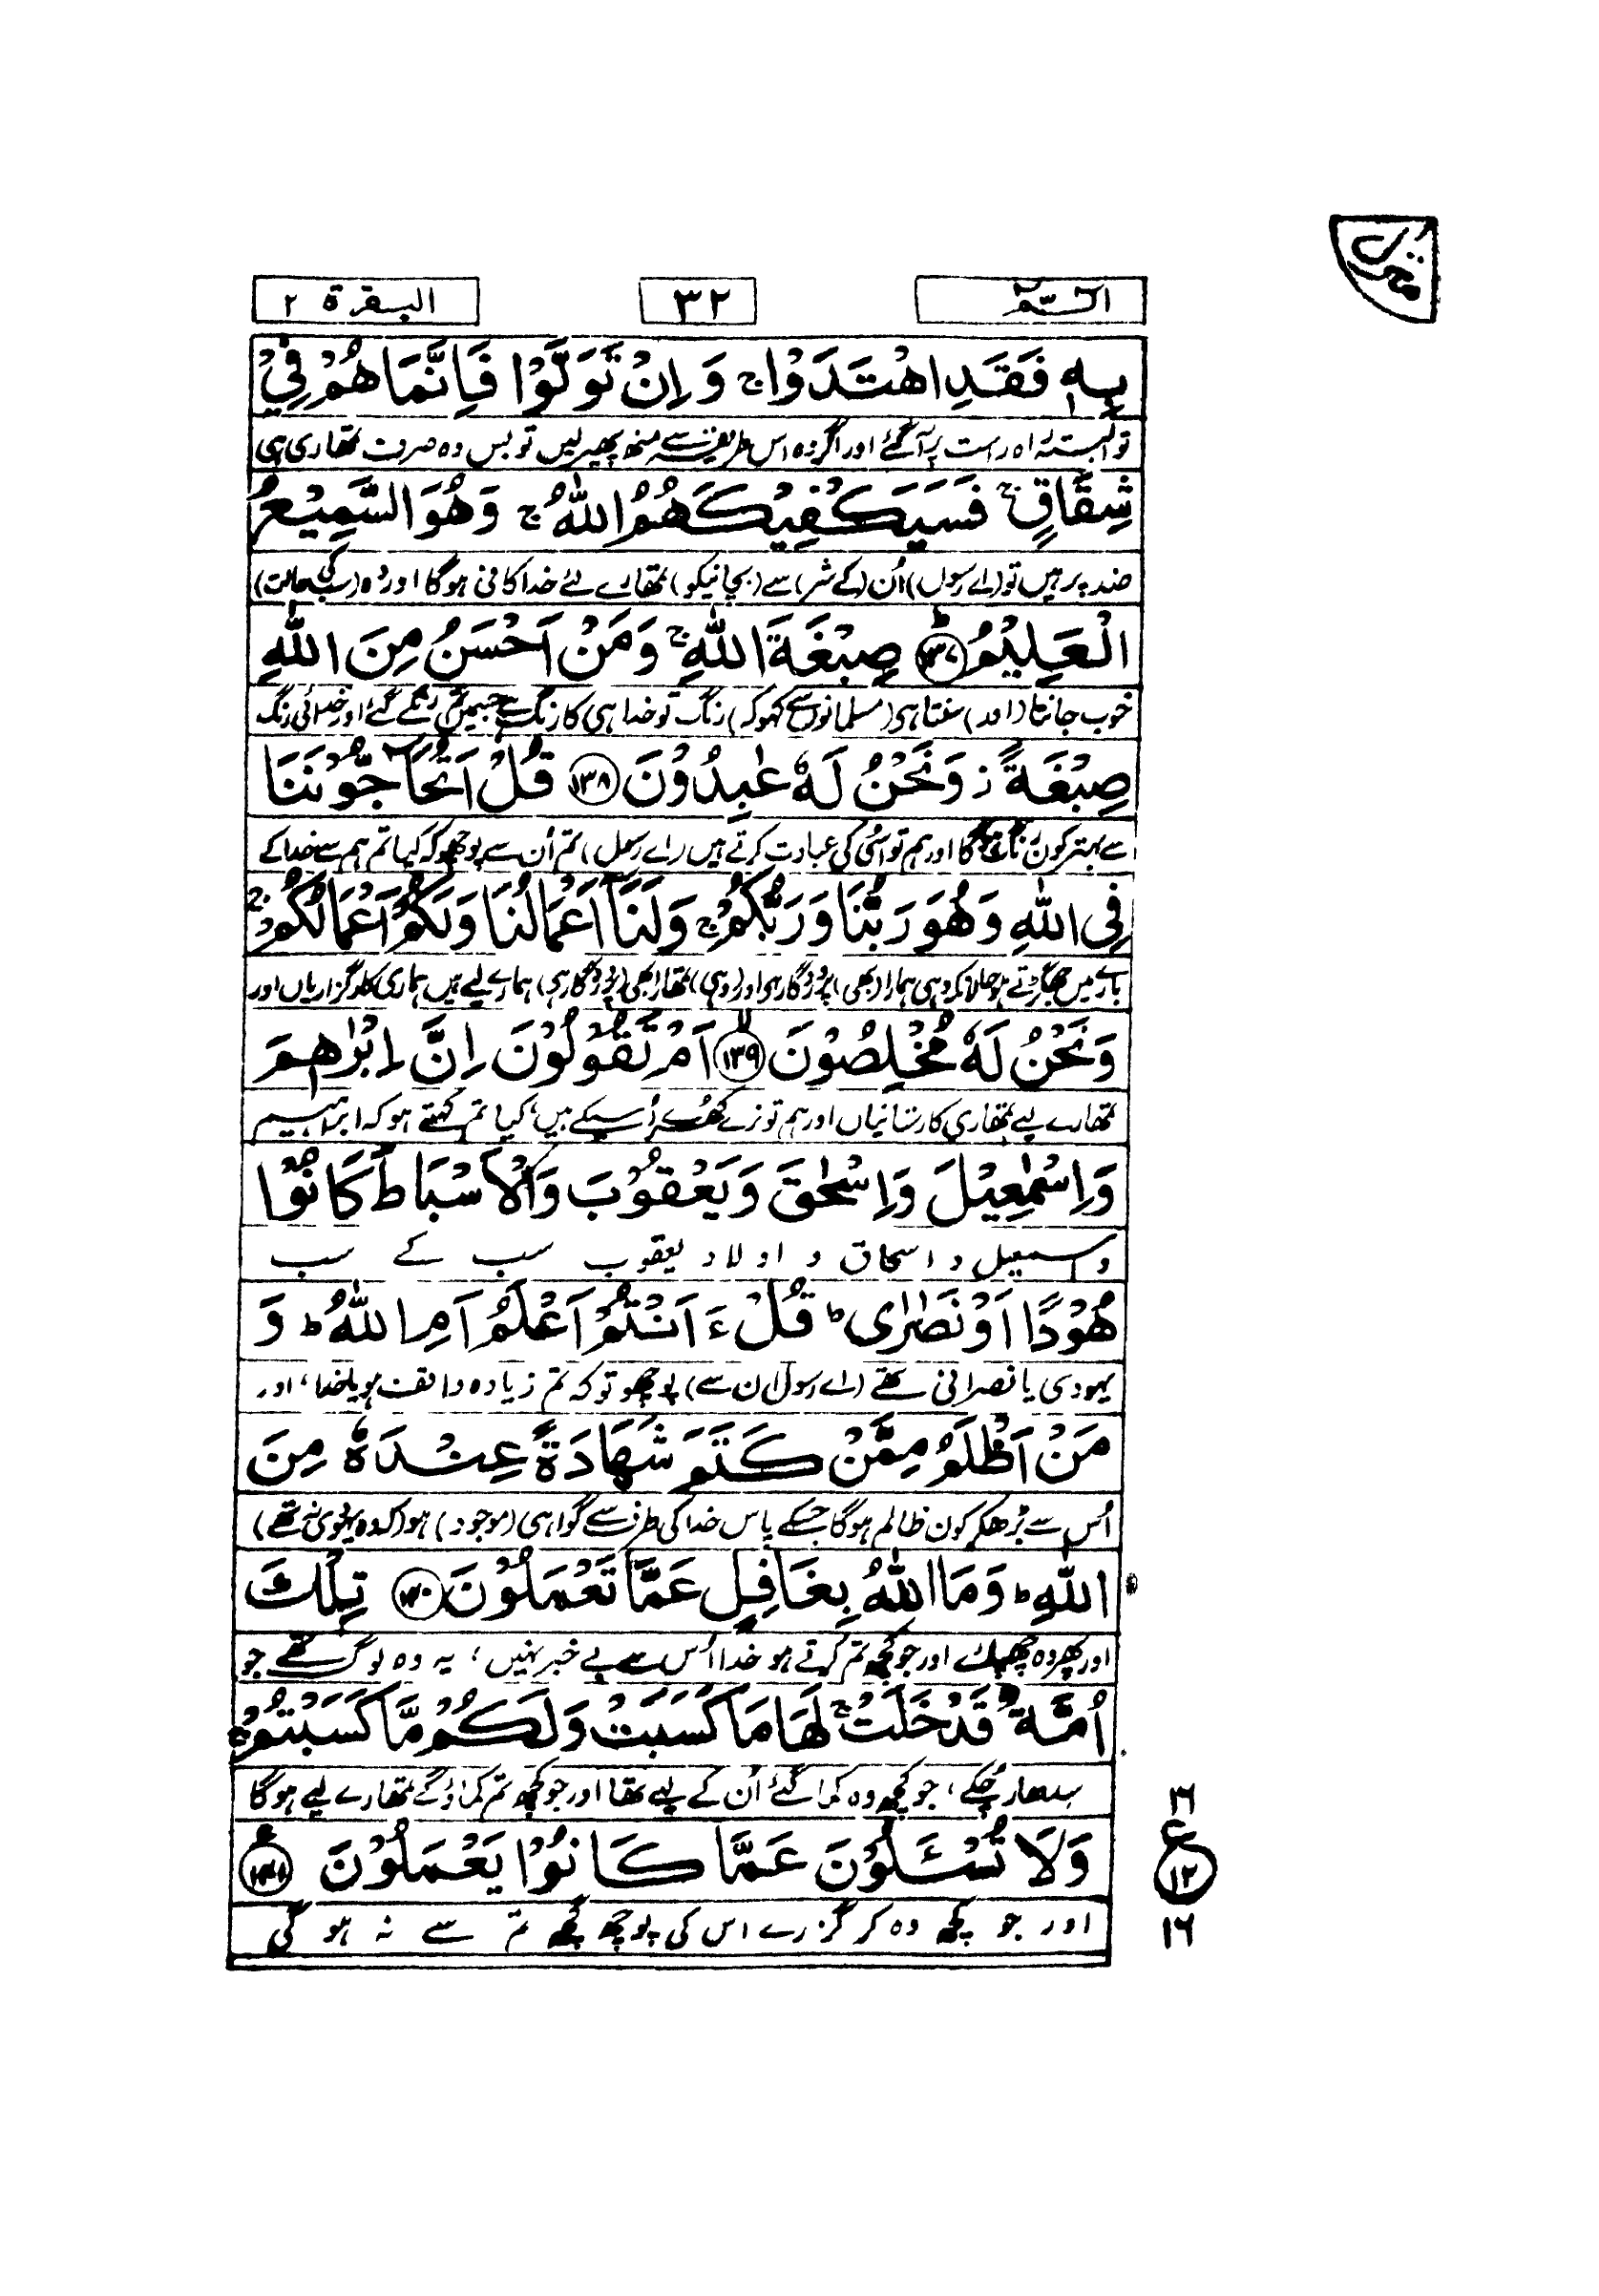 منزل
الٓمّٓ
۳۲
البقرة ۲
بِهٖ فَقَدِ اهْتَدَوْا ۚ وَ اِنْ تَوَلَّوْا فَاِنَّمَا هُمْ فِيْ
تو البتہ راہ راست پر آگئے اور اگر وہ اس طریقے سے منھ پھیر لیں تو بس وہ صرف تمھاری ہی
شِقَاقٍ ۚ فَسَيَكْفِيْكَهُمُ اللّٰهُ ۚ وَهُوَ السَّمِيْعُ
ضد پر ہیں تو (اے رسول) اُن (کے شر) سے (بچانیکو) تمھارے لئے خدا کافی ہوگا اور وُہ (سب کی حالت)
الْعَلِيْمُ ﴿۱۳۷﴾ صِبْغَةَ اللّٰهِ ۚ وَمَنْ اَحْسَنُ مِنَ اللّٰهِ
خوب جانتا (اور) سنتا ہی (مسلمانوں سے کہو کہ) رنگ تو خدا ہی کا رنگ ہے جسمیں تم رنگے گئے اور خدائی رنگ
صِبْغَةً ز وَّنَحْنُ لَهٗ عٰبِدُوْنَ ﴿۱۳۸﴾ قُلْ اَتُحَآجُّوْنَنَا
سے بہتر کون رنگ ہوگا اور ہم تو اسُی کی عبادت کرتے ہیں (اے رسول) تم اُن سے پوچھو کہ کیا تم ہم سے خدا کے
فِى اللّٰهِ وَهُوَ رَبُّنَا وَرَبُّكُمْ ۚ وَلَنَآ اَعْمَالُنَا وَلَكُمْ اَعْمَالُكُمْ ۚ
بارے میں جھگڑتے ہو حالانکہ وہی ہمارا (بھی) پروردگار ہی اور (وہی) تمھارا بھی (پروردگار ہی) ہمارے لیے ہیں ہماری کارگزاریاں اور
وَنَحْنُ لَهٗ مُخْلِصُوْنَ ﴿۱۳۹﴾ اَمْ تَقُوْلُوْنَ اِنَّ اِبْرٰهٖمَ
تمھارے لیے تمھاری کارستانیاں اور ہم تو نرے کھرے اُسی کے ہیں، کیا تم کہتے ہو کہ ابراہیم
وَاِسْمٰعِيْلَ وَاِسْحٰقَ وَيَعْقُوْبَ وَالْاَسْبَاطَ كَانُوْا
و اسمعیل و اسحاق و اولاد یعقوب سب کے سب
هُوْدًا اَوْ نَصٰرٰى ؕ قُلْ ءَاَنْتُمْ اَعْلَمُ اَمِ اللّٰهُ ؕ وَ
یہودی یا نصرانی تھے (اے رسول ان سے) پوچھو تو کہ تم زیادہ واقف ہو یا خدا، اور
مَنْ اَظْلَمُ مِمَّنْ كَتَمَ شَهَادَةً عِنْدَهٗ مِنَ
اُس سے بڑھکر کون ظالم ہوگا جسکے پاس خدا کی طرف سے گواہی (موجود) ہو (کہ وہ یہودی نہ تھے)
اللّٰهِ ؕ وَمَا اللّٰهُ بِغَافِلٍ عَمَّا تَعْمَلُوْنَ ﴿۱۴۰﴾ تِلْكَ
اور پھر وہ چھپائے اور جو کچھ تم کرتے ہو خدا اُس سے بے خبر نہیں، یہ وہ لوگ تھے جو
اُمَّةٌ قَدْ خَلَتْ ۚ لَهَا مَا كَسَبَتْ وَلَكُمْ مَّا كَسَبْتُمْ ۚ
سدھار چُکے، جو کچھ وہ کما گئے اُن کے لیے تھا اور جو کچھ تم کماؤ گے تمھارے لیے ہوگا
وَلَا تُسْـَٔلُوْنَ عَمَّا كَانُوْا يَعْمَلُوْنَ ﴿۱۴۱﴾
ع
۱۲
۱۶
اور جو کچھ وہ کر گزرے اس کی پوچھ گچھ تم سے نہ ہو گی